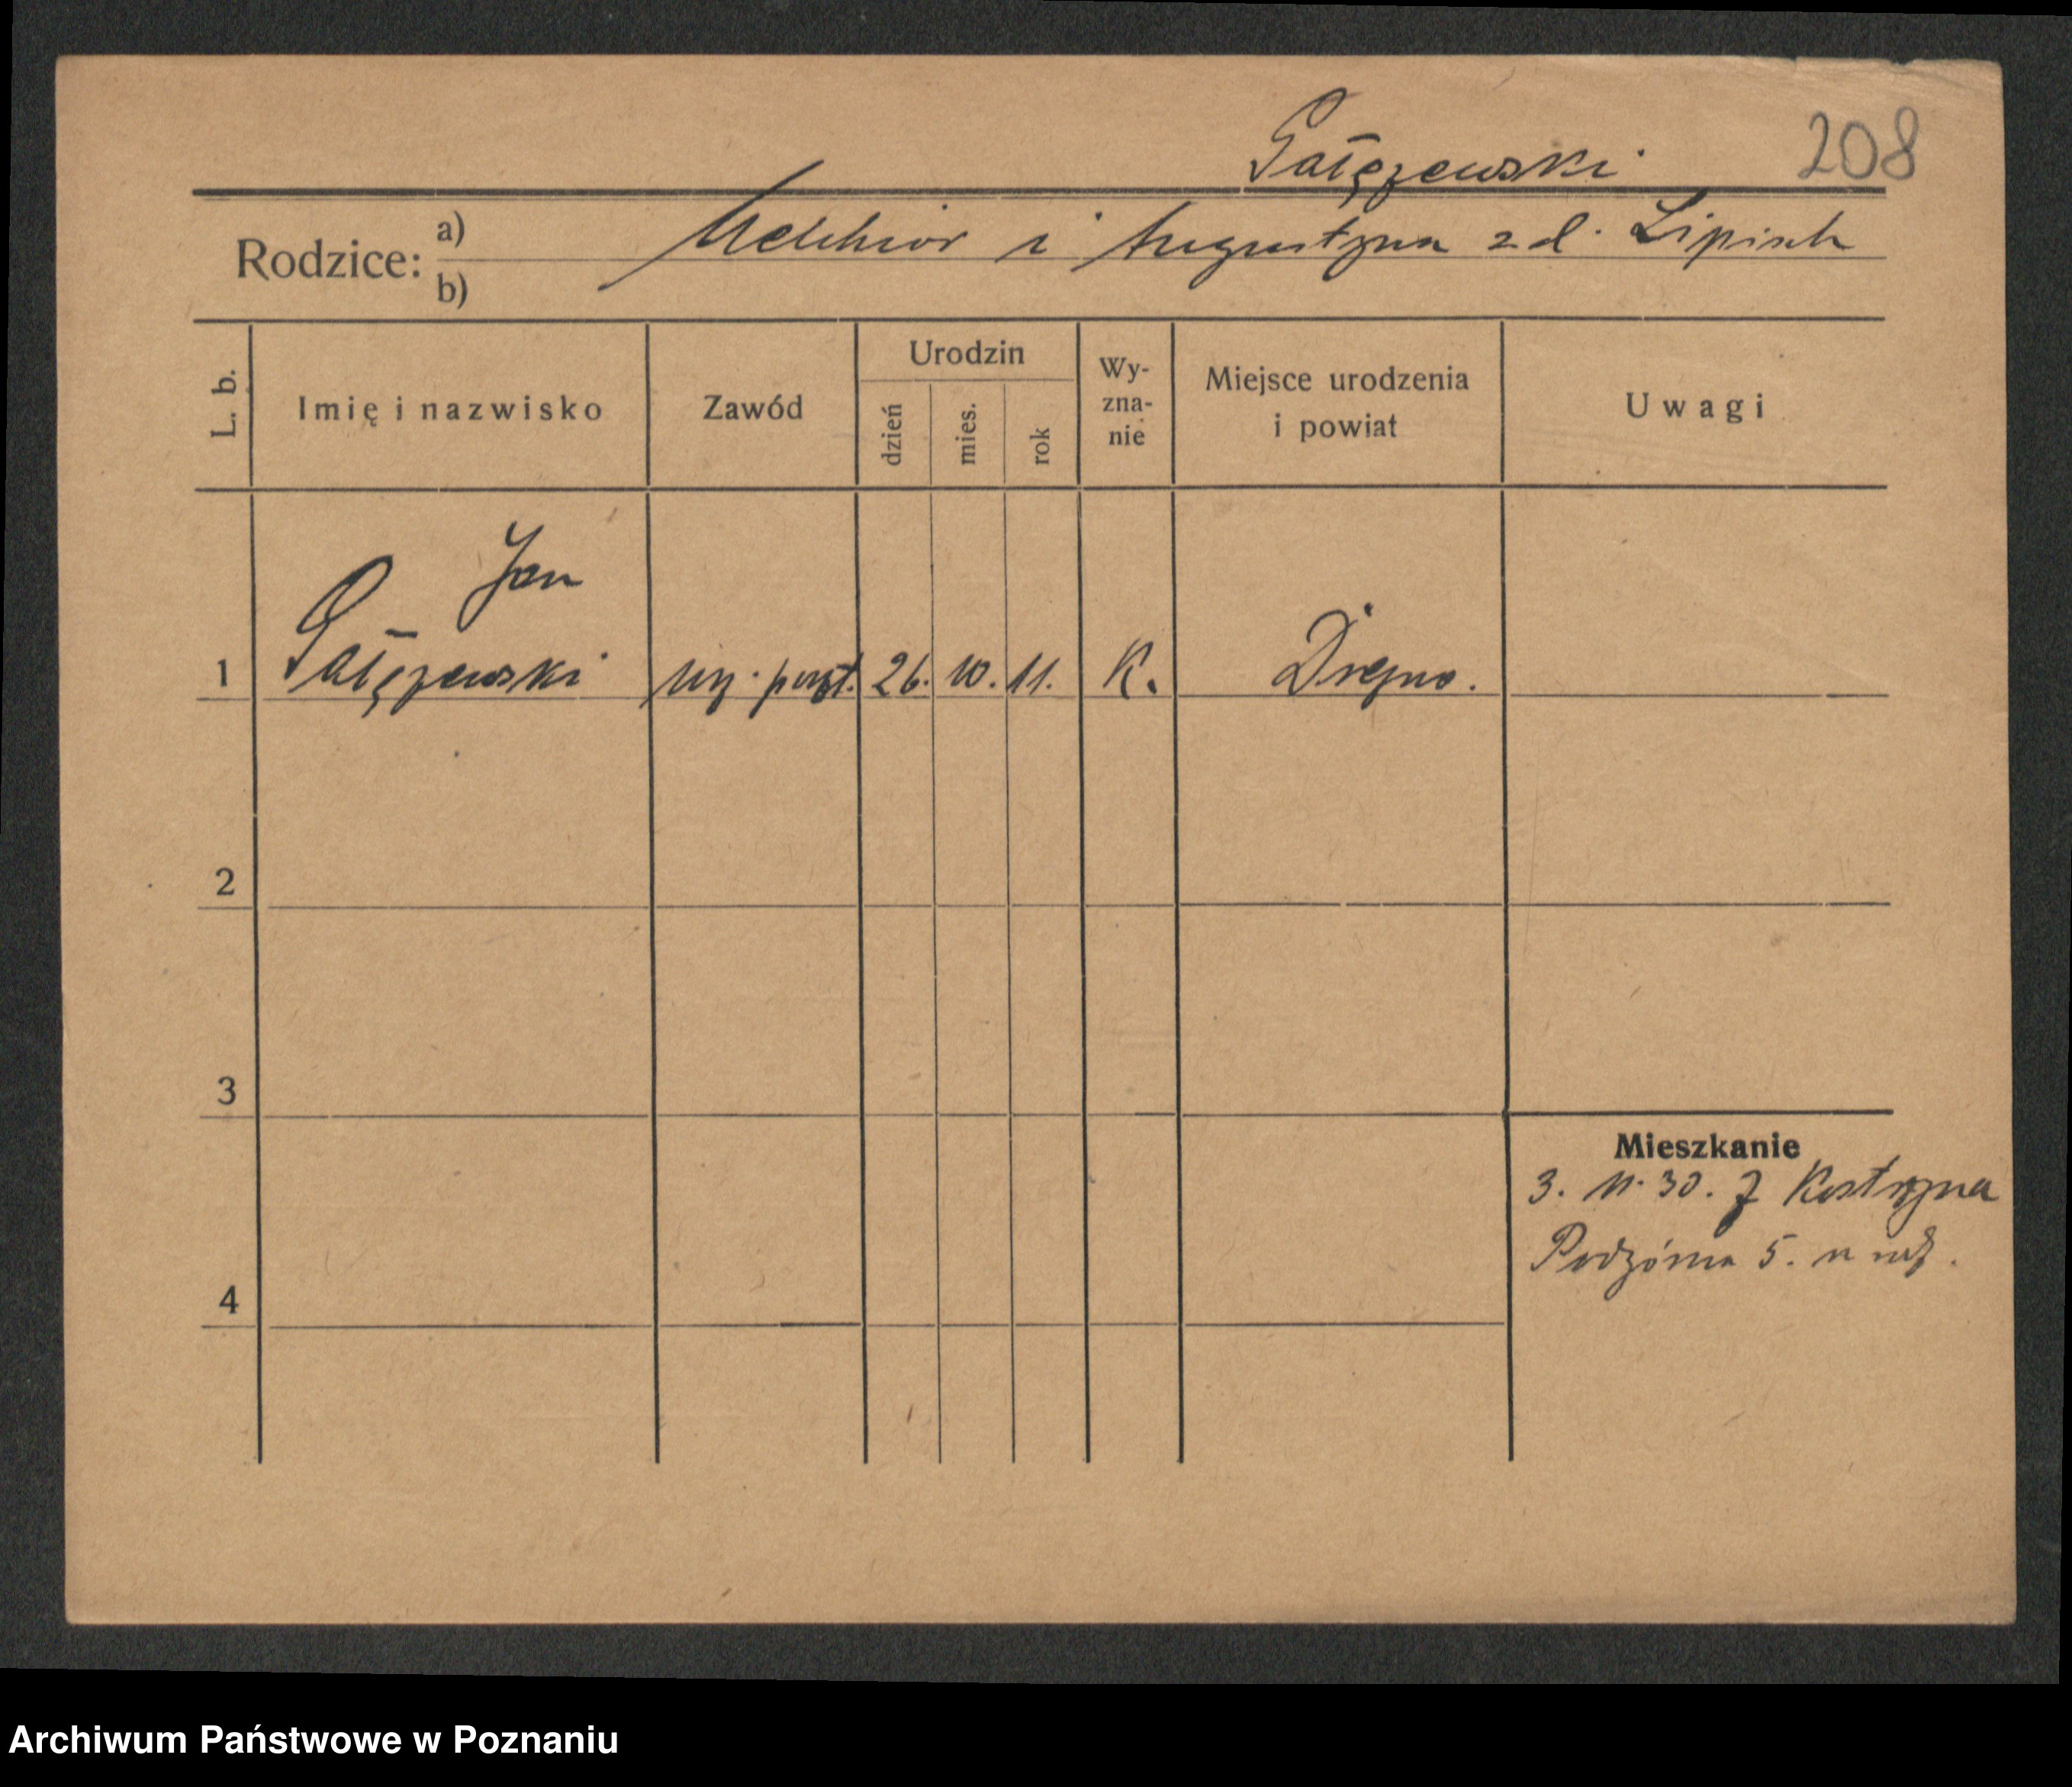 Gałęzewski
208
Rodzice:
a) Melchior i Augustyna z d. Lipiach
b)
L. b.
Imię i nazwisko
Zawód
Urodzin
dzień
mies.
rok
Wy-
zna-
nie
Miejsce urodzenia
i powiat
Uwagi
Jan
1 Gałęzewski urz. poczt. 26. 10. 11. K. Drezno.
2
3
4
Mieszkanie
3. 11. 30. z Kostrzyna
Podgórna 5.
Archiwum Państwowe w Poznaniu